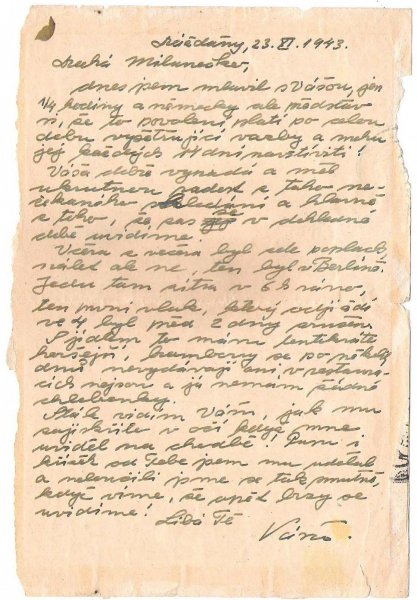 Drážďany, 23.XI.1943.
Drahá Milunečko,
dnes jsem mluvil s Vášou, jen
1/4 hodiny a německy ale představ
si, že to povolení platí po celou
dobu vyšetřující vazby a mohu
jej každých 14 dní navštíviti!
Váša dobře vypadá a měl
ukrutnou radost z toho ne-
čekaného shledání a hlavně
z toho, že zas se v dohledné
době uvidíme.
Včera z večera byl zde poplach,
nálet ale ne, ten byl v Berlíně.
Jedu tam zítra v 6 h ráno,
ten první vlak, který odjíždí
ve 4 byl před 2 dny zrušen.
S jídlem to mám tentokráte
horší, brambory se po několik
dnů nevydávají ani v restaura-
cích nejsou a já nemám žádné
chlebenky.
Stále vidím Vášu, jak mu
zajiskřilo v očí když mne
uviděl na chodbě! Pum i
křížek od Tebe jsem mu udělal
a neloučili jsme se tak smutně,
když víme, že opět brzy se
uvidíme!
Líbá Tě
Váňa